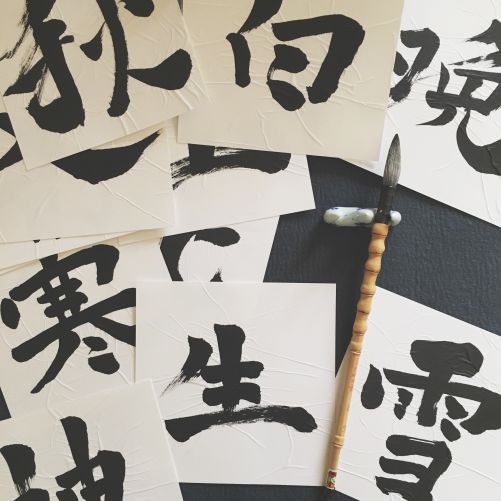 秋
白
晩
寒
生
雪
神